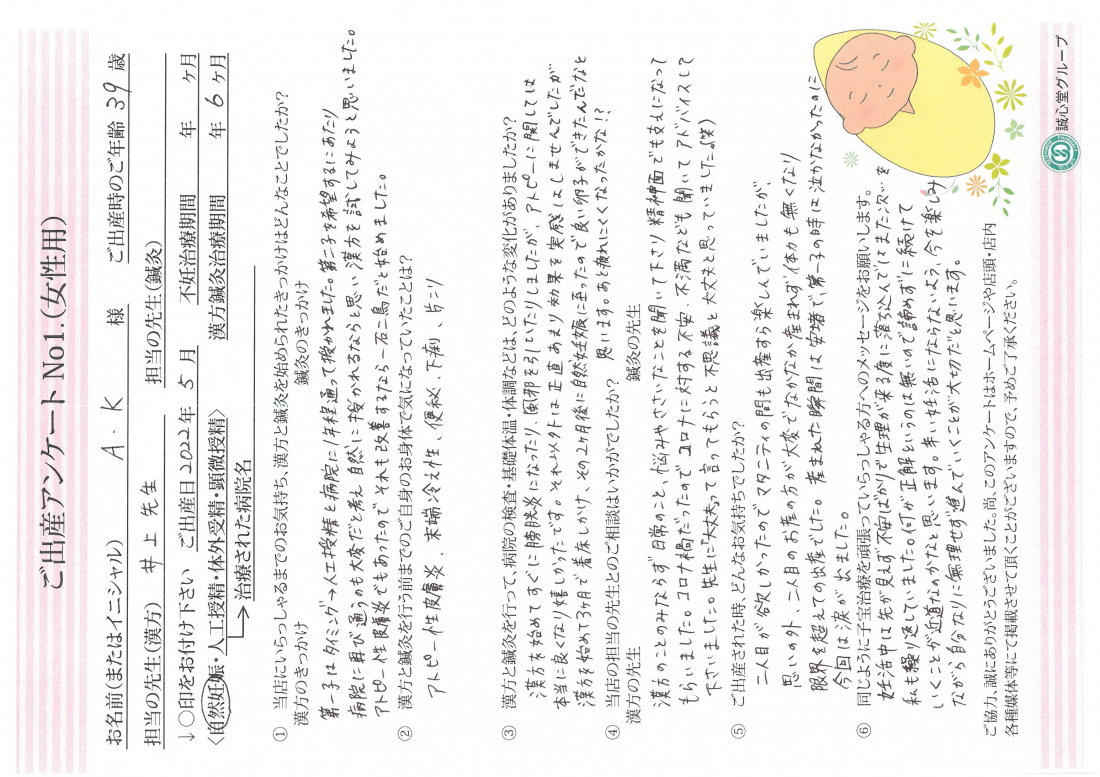 ご出産アンケート No1.(女性用)
お名前(またはイニシャル) A・K 様 ご出産時のご年齢 39 歳
担当の先生(漢方) 井上先生 担当の先生(鍼灸)
↓〇印をお付け下さい ご出産日 2022年 5 月 不妊治療期間 年 ヶ月
〈自然妊娠・人工授精・体外受精・顕微授精〉 漢方鍼灸治療期間 年 6 ヶ月
→ 治療された病院名
① 当店にいらっしゃるまでのお気持ち、漢方と鍼灸を始められたきっかけはどんなことでしたか?
漢方のきっかけ 鍼灸のきっかけ
第一子はタイミング→人工授精と病院に1年程通って授かれました。第二子を希望するにあたり
病院に再び通うのも大変だと考え自然に授かれるならと思い漢方を試してみようと思いました。
アトピー性皮膚炎でもあったのでそれも改善するなら一石二鳥だと始めました。
② 漢方と鍼灸を行う前までのご自身のお身体で気になっていたことは?
アトピー性皮膚炎、末端冷え性、便秘、下痢、肩こり
③ 漢方と鍼灸を行って、病院の検査・基礎体温・体調などは、どのような変化がありましたか?
漢方を始めてすぐに膀胱炎になったり、風邪を引いたりしましたが、アトピーに関しては
本当に良くなり嬉しかったです。それ以外では正直あまり効果を実感はしませんでしたが
漢方を始めて3ヶ月で着床しかけ、その2ヶ月後に自然妊娠に至ったので良い卵子ができたんだなと
思います。あと疲れにくくなったかな!?
④ 当店の担当の先生とのご相談はいかがでしたか?
漢方の先生 鍼灸の先生
漢方のことのみならず日常のこと、悩みやささいなことを聞いて下さり精神面でも支えになって
もらいました。コロナ禍だったのでコロナに対する不安、不満なども聞いてアドバイスして
下さいました。先生に「大丈夫」って言ってもらうと不思議と大丈夫と思っていました。(笑)
⑤ ご出産された時、どんなお気持ちでしたか?
二人目が欲しかったのでマタニティの間も出産すら楽しんでいましたが、
思いの外、二人目のお産の方が大変でなかなか産まれず体力も無くなり
限界を超えての出産でした。産まれた瞬間は安堵で第一子の時には泣かなかったのに
今回は涙が出ました。
⑥ 同じように子宝治療を頑張っていらっしゃる方へのメッセージをお願いします。
妊活中は先が見えず不安ばかりで生理が来る度に落ち込んではまた次へを
私も繰り返していました。何が正解というのは無いので諦めずに続けて
いくことが近道なのかなと思います。辛い妊活にならないよう、今を楽しみ
ながら自分なりに無理せず進んでいくことが大切だと思います。
ご協力、誠にありがとうございました。尚、このアンケートはホームページや店頭・店内
各種媒体等にて掲載させて頂くことがございますので、予めご了承ください。
誠心堂グループ